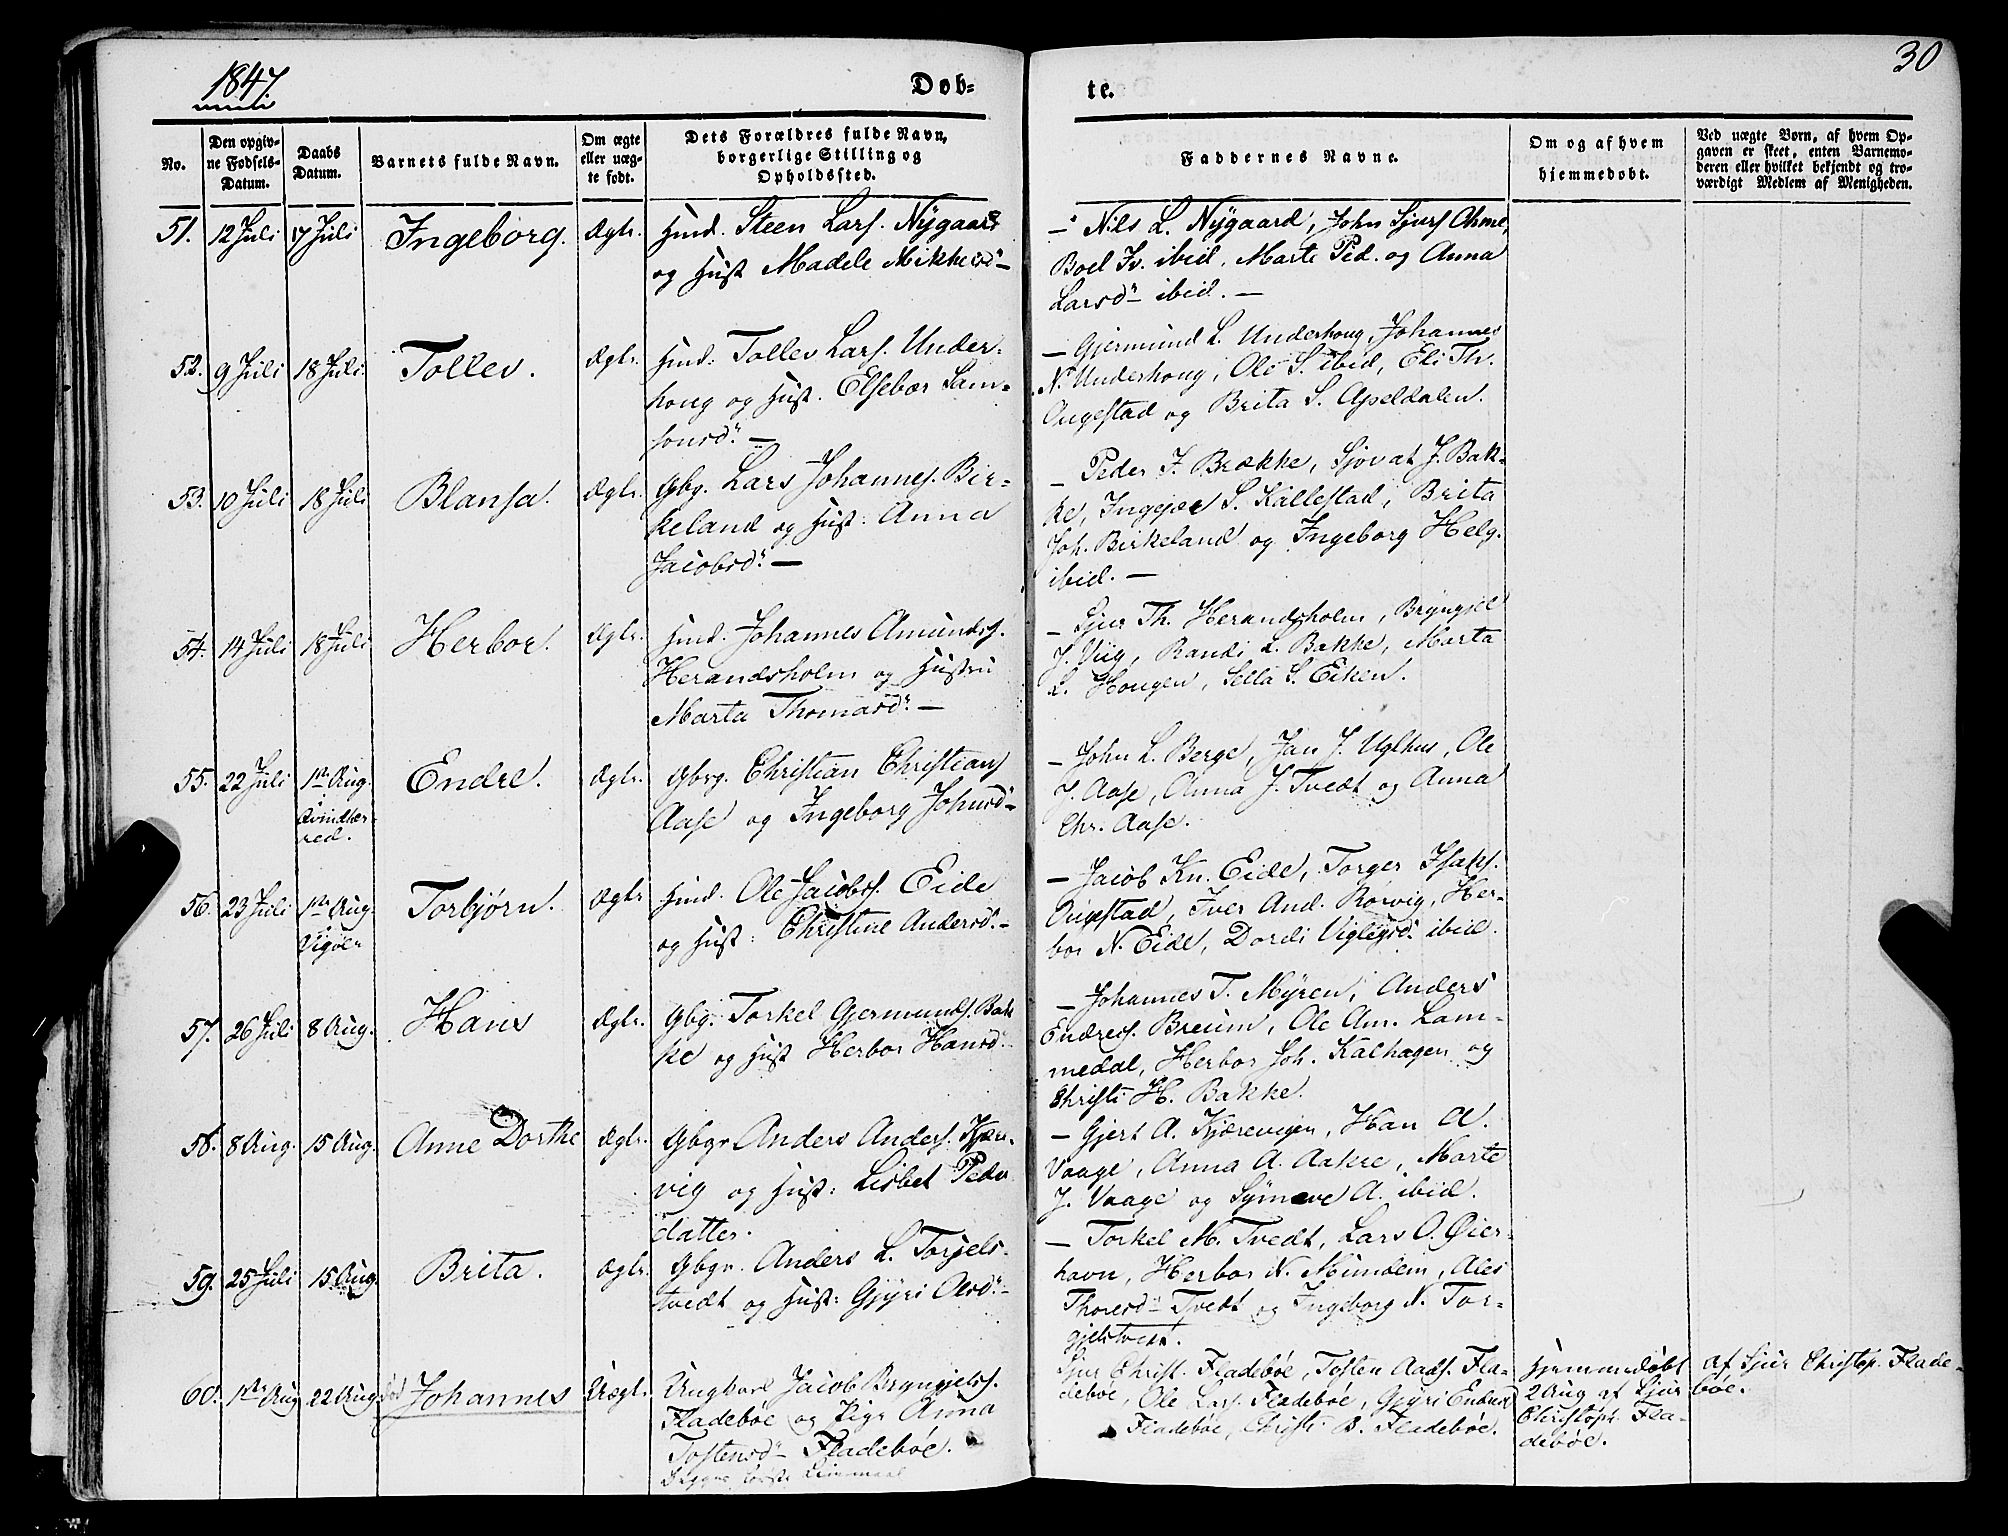 1847.
Døb=
te.
30
No.
Den opgiv=
ne Fødsels=
Datum.
Daabs
Datum.
Barnets fulde Navn.
Om ægte
eller uæg=
te født.
Dets Forældres fulde Navn,
borgerlige Stilling og
Opholdssted.
Faddernes Navne.
Om og af hvem
hjemmedøbt.
Ved uægte Børn, af hvem Op=
gaven er skeet, enten Barnemo=
deren eller hvilket bekjendt og tro=
værdigt Medlem af Menigheden.
51. 12 Juli 17 Juli Ingeborg. Ægte.
Hmd. Steen Lars. Nygaard
og Hust Madele Mikkelsd –
– Nils L. Nygaard, John Sjurs
Boel Iv. ibid, Marte Ped. og Anna
Larsd – ibid. –
52. 9 Juli 18 Juli Tollev. Ægte.
Hmd: Tollev Lars. Under=
houg og Hust. Elsebor Sam=
sonsd: –
– Gjermund L. Underhoug, Johannes
N. Underhoug, Ole S. ibid, Eli Th.
Ougestad og Brita S. Apeldalen.
53. 10 Juli 18 Juli Blansa. Ægte.
Gbg. Lars Johannes. Bir=
keland og Hust: Anna
Jacobsd: –
– Peder I. Brække, Sjovat J. Bak=
ke, Ingejær S. Kallestad, Brita
Joh. Birkeland og Ingeborg Helg.
ibid. –
54. 14 Juli 18 Juli Herbor. Ægte.
Hmd. Johannes Amunds.
Herandsholm og Hustru
Marta Thomasd: –
– Sjur Th. Herandsholm, Bryngjel
J. Viig, Randi L. Bakke, Marta
L. Hougen, Sella S. Eiken.
55. 22 Juli 1ste Aug.
Qvindher=
red.
Endre. Ægte.
Gbrg. Christian Christians
Aase og Ingeborg Johnsd –
– John L. Berge, Jan J. Uglhus, Ole
J. Aase, Anna J. Tvedt og Anna
Chr. Aase.
56. 23 Juli 1ste Aug.
Torbjørn. Ægte
Hmd. Ole Jacobs. Eide
og Hust: Christine Andersd. –
– Jacob Kn. Eide, Torger Isaks.
Ougestad, Iver And. Rørvig, Her=
bor N. Eide, Dordi Vigleigsd. ibid.
57. 26 Juli 8 Aug. Hans Ægte.
Gbg. Torkel Gjermunds. Bak
ke og Hust Herbor Hansd.
– Johannes T. Myren, Anders
Endres. Breum, Ole Am. Lam=
medal, Herbor Joh. Kalhagen og
Christi H. Bakke.
58. 8 Aug. 15 Aug. Anne Dorthe Ægte.
Gbgr Anders Anders. Kjær=
vig og Hust: Lisbet Peder
datter.
– Gjert A. Kjærevigen, Han A.
Vaage, Anna A. Aakre, Marte
J. Vaage og Symeve A. ibid.
59. 25 Juli 15 Aug. Brita. Ægte.
Gbgr. Anders L. Torgjels=
tvedt og Hust: Gjyri Olsd: –
– Torkel M. Tvedt, Lars O. Øier=
havn, Herbor N. Mundem, Ales
Thoresd – Tvedt og Ingeborg N. Tor=
gjelstvedt.
60. 1ste Aug 22 Aug. Johannes Uægte.
Ungkarl Jacob Bryngjels.
Fladebøe og Pige Anna
Tostensd – Fladebøe.
Begges første Leiermaal
Sjur Christ. Fladebøe, Tosten Aads. Fla=
debøe, Ole Lars. Fladebøe, Gjyri
Fladebøe, Christi B. Fladebøe.
Hjemmedøbt
2 Aug af Sjur
Christoph. Fla=
debøe.
af Sjur Christop. Flade=
bøe.